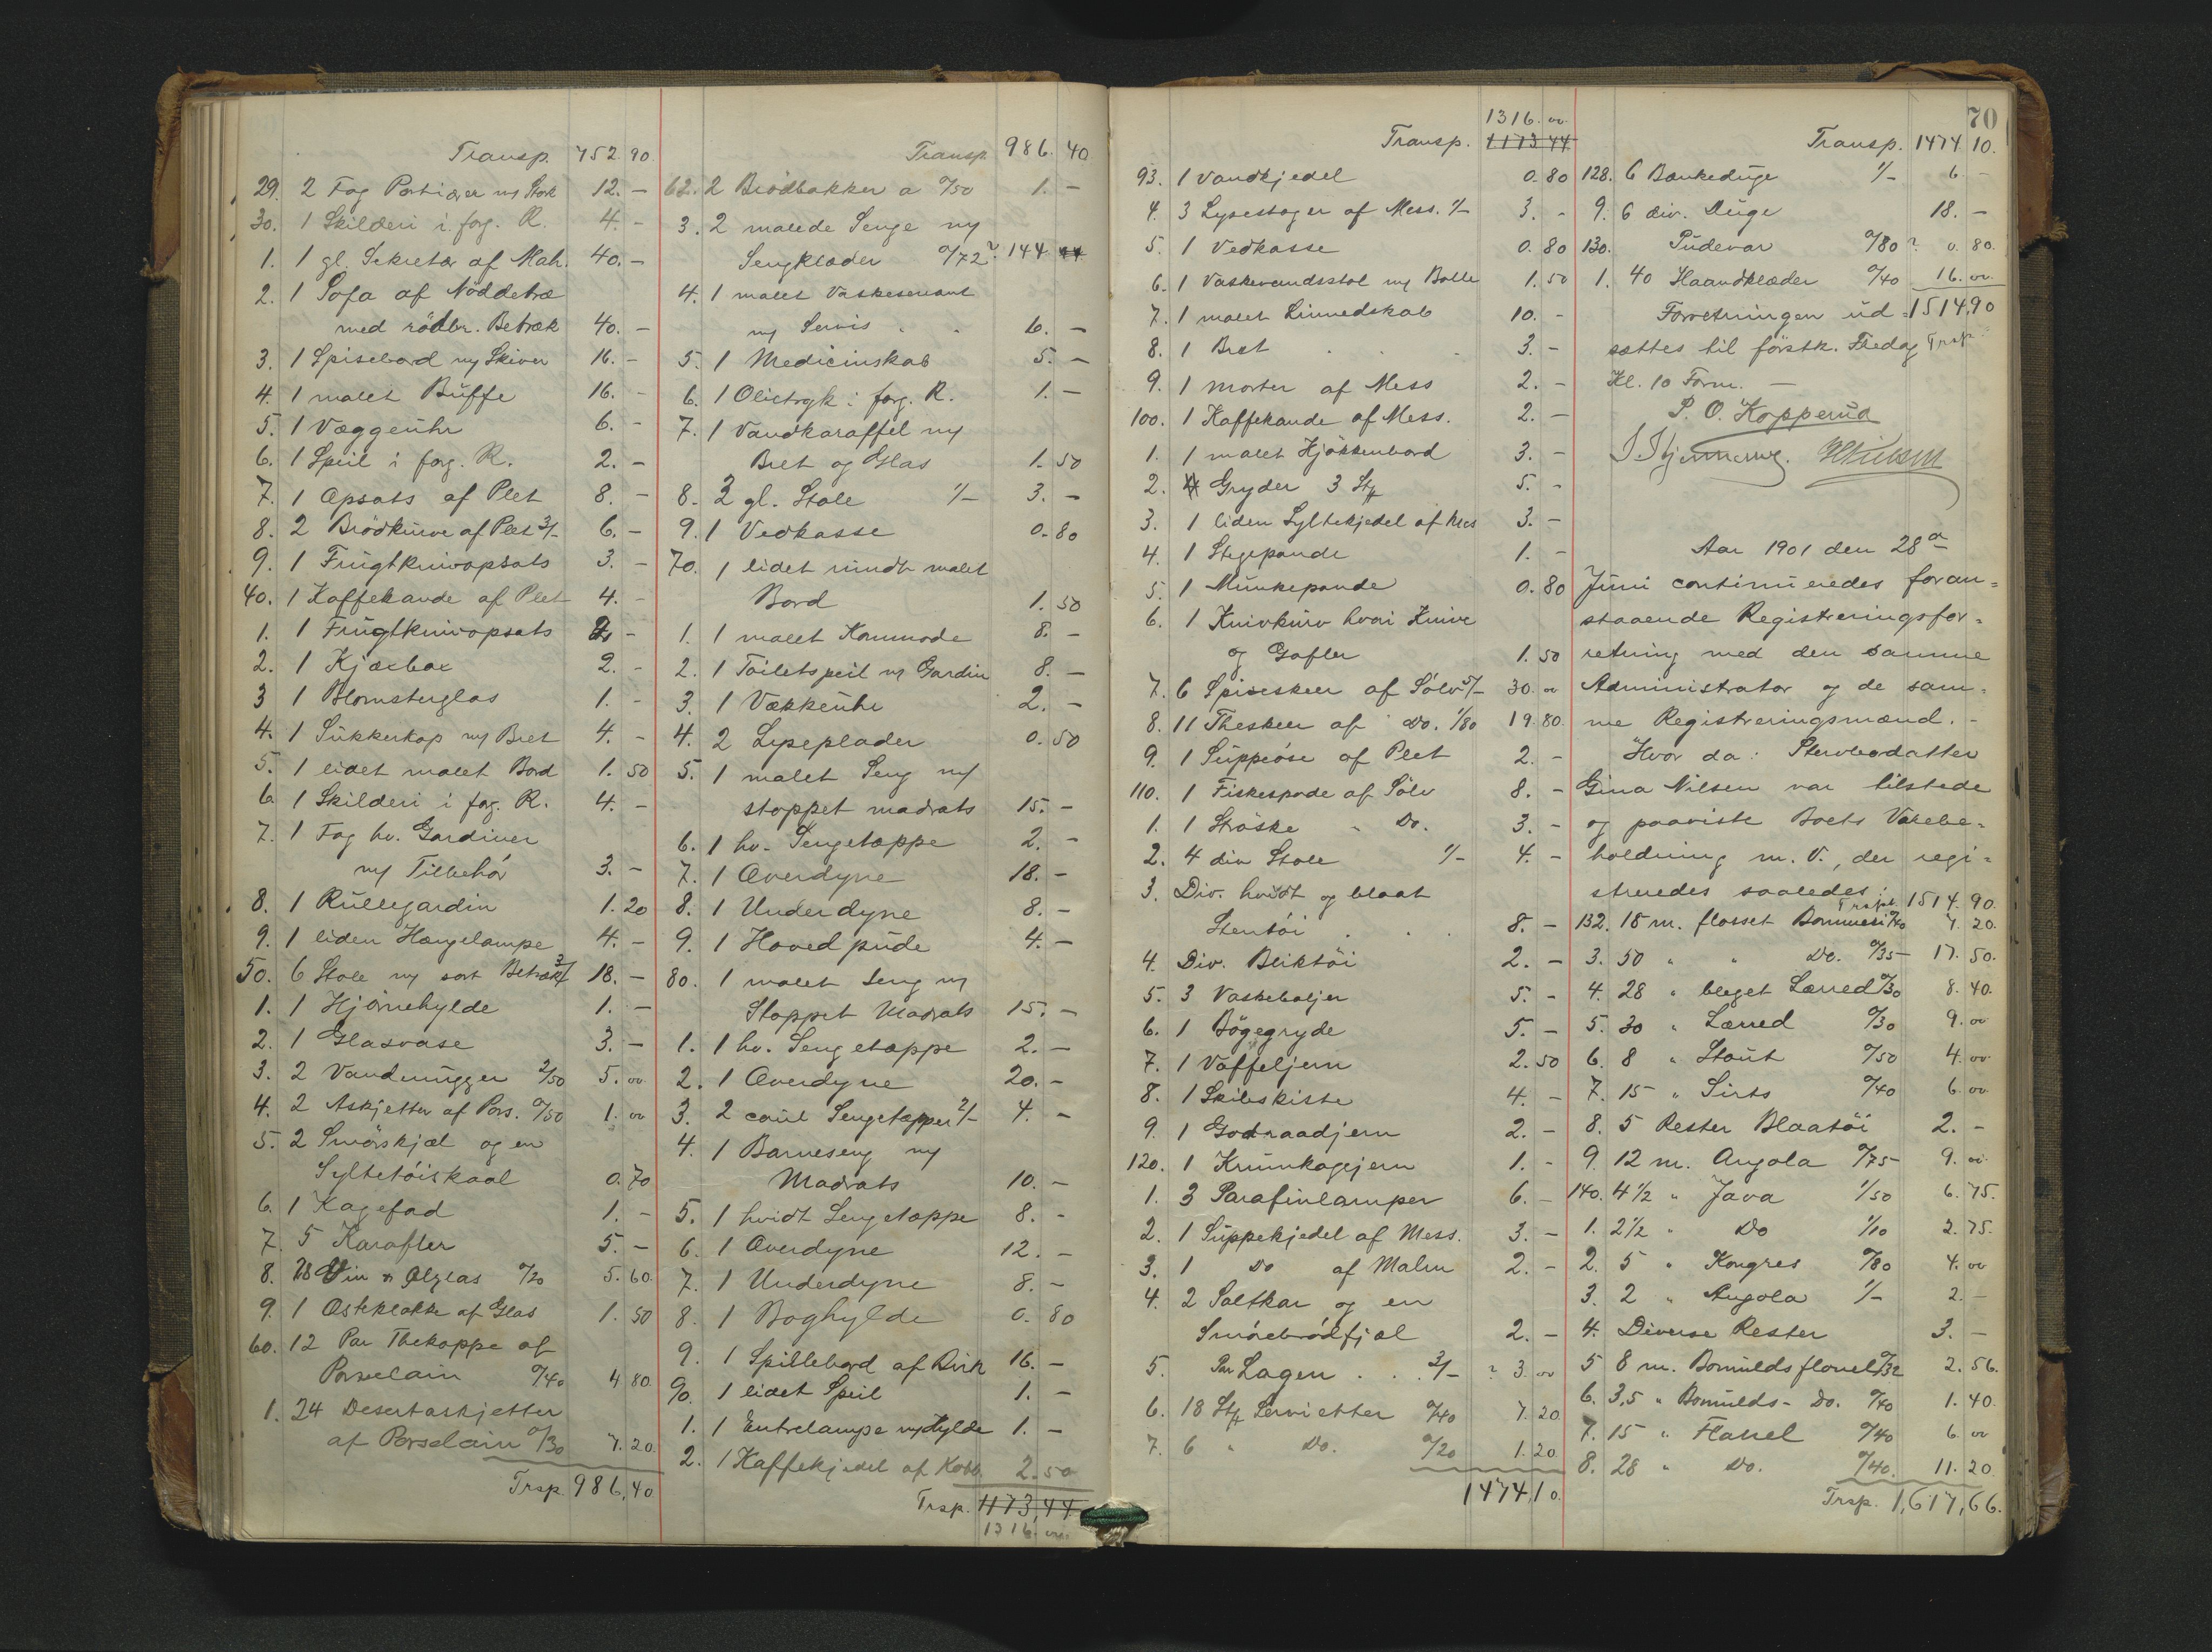 Transp. 752 90
29. 2 Fag Portierer m/ Stok 12. -
30. 1 Skilderi i forg. R. 4. -
1. 1 gl. Sekretær af Mah. 40. -
2. 1 Sofa af Nöddetræ
med rödbr. Betræk 40. -
3. 1 Spisebord m/ Skiver 16. -
4. 1 malet Buffe 16. -
5. 1 Væggeuhr 6. -
6. 1 Speil i forg. R. 2. -
7. 1 Opsats af Plet 8. -
8. 2 Brödkurve af Plet 3/- 6. -
9. 1 Frugtknivopsats 3. -
40. 1 Kaffekande af Plet 4. -
1. 1 Frugtknivopsats 2. -
2. 1 Kjæxbox 2. -
3 1 Blomsterglas 1. -
4. 1 Sukkerkop m/ Bret 4. -
5. 1 lidet malet Bord 1. 50
6 1 Skilderi i forg. R. 4. -
7. 1 Fag hv. Gardiner
m/ Tilbehör 3. -
8. 1 Rullegardin 1. 20
9. 1 liden Hængelampe 4. -
50. 6 Stole m/ sort Betræk 3/- 18. -
1. 1 Hjörnehylde 1. -
2. 1 Glasvase 3. -
3. 2 Vandmugger 2/50 5. oo
4. 2 Askjetter af Pors. 0/50 1. oo
5. 2 Smörskjæl og en
Syltetöiskaal 0. 70
6. 1 Kagefad 1. -
7. 5 Karafler 5. -
8. 28 Vin & Ölglas 0/20 5. 60
9. 1 Osteklokke af Glas 1. 50
60. 12 Par Thekoppe af
Porselain 0/40 4 80
1. 24 Desertaskjetter
af Porselain 0/30 7. 20.
Trsp. 986,40
Transp. 986. 40
62. 2 Brödbakker a 0/50 1. -
3. 2 malede Senge m/
Sengklæder 0/72? 144
4. 1 malet Vaskeservant
m/ Servis 6. -
5. 1 Medicinskab 5. -
6. 1 Olietryk i forg. R. 1. -
7. 1 Vandkaraffel m/
Bret og Glas 1. 50
8. 3 gl. Stole 1/- 3. -
9. 1 Vedkasse 0. 80
70. 1 lidet rundt malet
Bord 1. 50
1. 1 malet Kommode 8. -
2. 1 Toiletspeil m/ Gardin 8. -
3. 1 Vækkeuhr 2. -
4. 2 Lyseplader 0. 50
5. 1 malet Seng m/
stoppet madrats 15. -
6. 1 hv. Sengetæppe 2. -
7. 1 Overdyne 18. -
8. 1 Underdyne 8. -
9. 1 Hovedpude 4. -
80. 1 malet Seng m/
Stoppet Madrats 15. -
1. 1 hv. Sengetæppe 2. -
2. 1 Overdyne 20. -
3. 2 coul Sengetæpper 2/- 4. -
4. 1 Barneseng m/
Madrats 10. -
5. 1 hvidt Sengetæppe 8. -
6. 1 Overdyne 12. -
7. 1 Underdyne 8. -
8. 1 Boghylde 0. 80
9. 1 Spillebord af Birk 16. -
90. 1 lidet Speil 1. -
1. 1 Entrelampe m/ Hylde 1. -
2. 1 Kaffekjedel af Kobb. 2. 50
Trsp. 1173,44
1316. oo
1316. oo.
Transp. 1173 44
93. 1 Vandkjedel 0. 80
4. 3 Lysestager af Mess. 1/- 3. -
5. 1 Vedkasse 0. 80
6. 1 Vaskevandsstol m/ Bolle 1. 50
7. 1 malet Linnedskab 10. -
8. 1 Bret 3. -
9. 1 morter af Mess 2. -
100. 1 Kaffekande af Mess. 2. -
1. 1 malet Kjökkenbord 3. -
2. Gryder 3 Stk 5. -
3. 1 liden Syltekjedel af Mes 3. -
4. 1 Stegepande 1. -
5. 1 Munkepande 0. 80
6. 1 Knivkurv hvori Knive
og Gafler 1. 50
7. 6 Spiseskeer af Sölv 5/- 30. oo
8. 11 Theskeer af Do. 1/80 19. 80.
9. 1 Suppeöse af Plet 2. -
110. 1 Fiskespade af Sölv 8. -
1. 1 Ströske " Do. 3. -
2. 4 div Stole 1/- 4. -
3. Div. hvidt og blaat
Stentöi 8. -
4. Div. Bliktöi 2. -
5. 3 Vaskebaljer 5. -
6. 1 Bögegryde 5. -
7. 1 Vaffeljern 2. 50
8. 1 Skibskiste 4. -
9. 1 Godraadjern 2. -
120. 1 Krumkagejern 1. -
1. 3 Parafinlamper 6. -
2. 1 Suppekjedel af Mess. 3. -
3. 1 Do af Malm 2. -
4. 2 Saltkar og en
Smörebrödfjæl 2. -
5. Par Lagen 3/- ? 3. oo
6. 18 Stk Servietter 0/40 7. 20
7. 6 " Do. 0/20 1. 20
1474,10.
70
Transp. 1474 10.
128. 6 Bænkeduge 1/- 6 -
9. 6 div. Duge 18. -
130. Pudevar 0/80 ? 0. 80.
1. 40 Haandklæder 0/40 16. oo.
Forretningen ud- 1514,90
sættes til förstk. Fredag Trsp
Kl. 10 Form. -
P. O. Kopperud
Aar 1901 den 28de
Juni continueredes foran=
staaende Registreringsfor=
retning med den samme
Administrator og de sam=
me Registreringsmænd. -
Hvor da: Stervbodatter
Gina Nilsen var tilstede
og paaviste Boets Varebe=
holdning m. V., der regi=
streredes saaledes:
Trsp. 1514. 90.
132. 18 m. flosset Bommesi 0/40 7. 20.
3. 50 " " Do. 0/35 17. 50.
4. 28 " bleget Lærred 0/30 8. 40.
5. 30 " Lærred 0/30 9. oo
6. 8 " Stout 0/50 4. oo
7. 15 " Sirts 0/40 6 oo
8. 5 Rester Blaatöi 2. -
9. 12 m. Angola 0/75 9. oo
140. 4 1/2 " Java 1/50 6. 75.
1. 2 1/2 " Do 1/10 2. 75.
2. 5 " Kongres 0/80 4. oo
3. 2 " Angola 1/- 2. -
4. Diverse Rester 3. -
5 8 m. Bomuldsflonel 0/32 2. 56.
6. 3,5 " Bomulds- Do. 0/40 1. 40.
7. 15 " Flanel 0/40 6 oo
8. 28 " Do. 0/40. 11. 20
Trsp. 1,617,66.